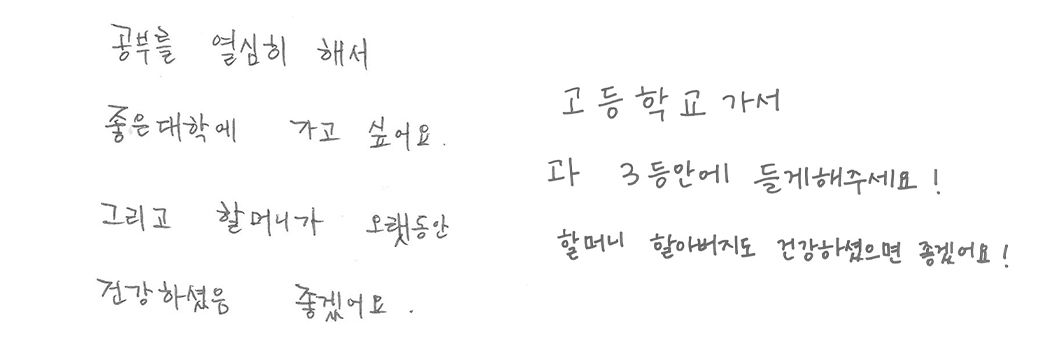 공부를 열심히 해서
좋은대학에 가고 싶어요.
그리고 할머니가 오랫동안
건강하셨음 좋겠어요.
고등학교 가서
과 3등안에 들게해주세요!
할머니 할아버지도 건강하셨으면 좋겠어요!